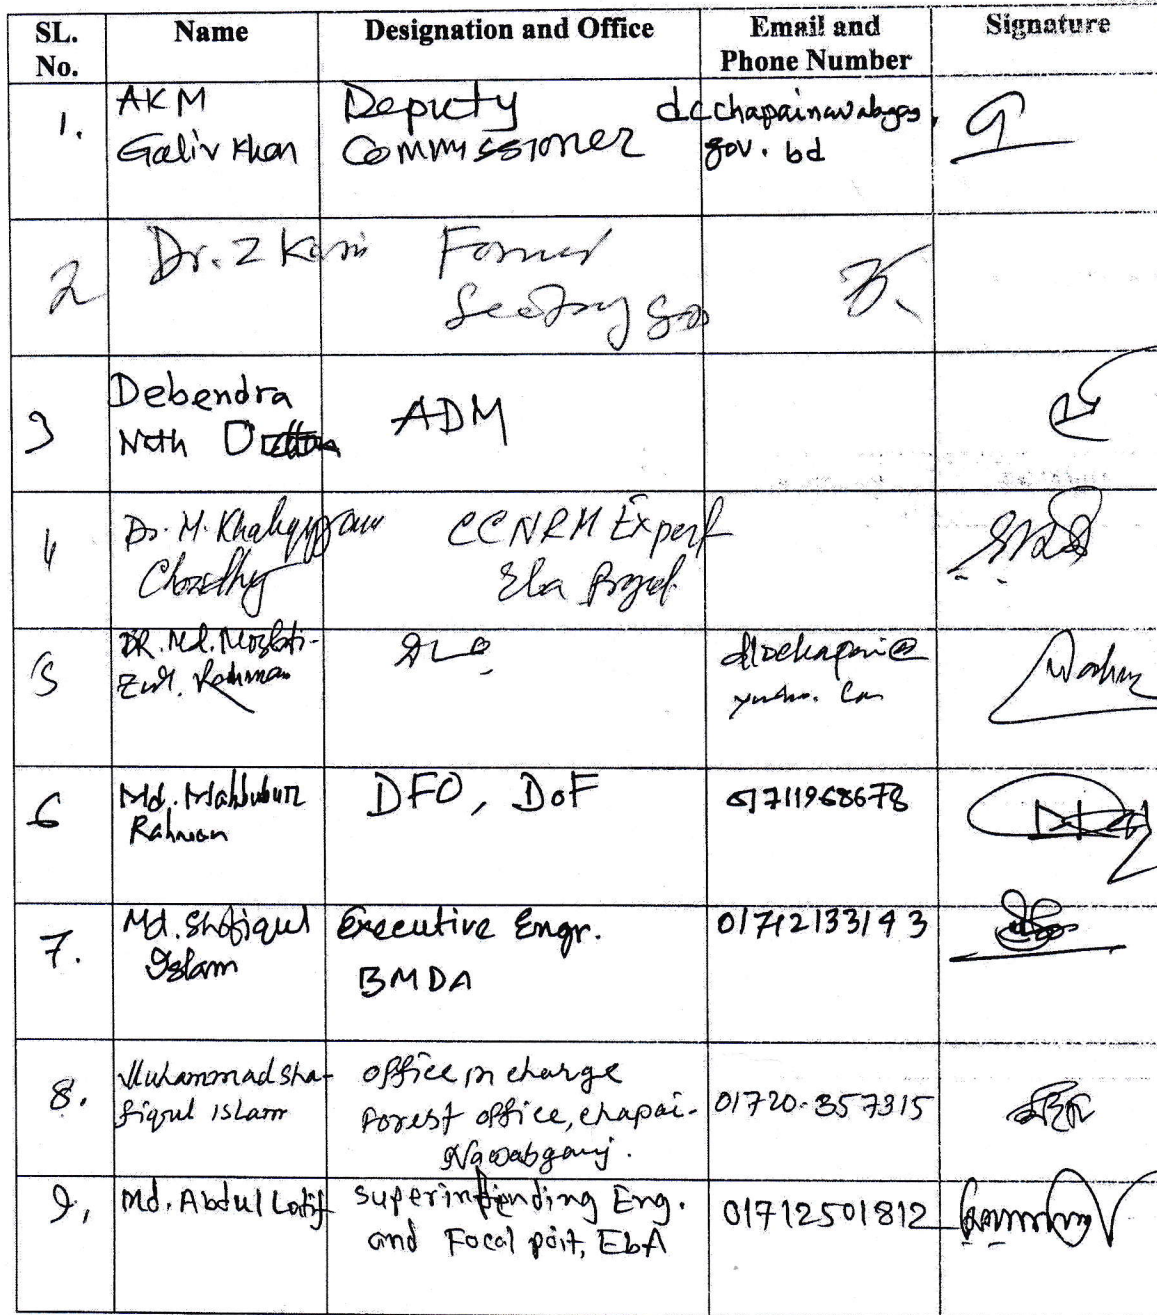 SL. No. Name Designation and Office Email and Phone Number Signature
1. AKM Galiv Khan Deputy Commissioner dcchapainawabgas. gov. bd
2 Dr. Z Karim Former
3 Debendra Nath ADM
4 Dr. M. Khaliquzzaman CCNRM Expert Eba Project
5 DR. Md. Rahman DLO
6 Md. Mahbubur Rahman DFO, DoF 01711968678
7. Md. Shofiqul Islam Executive Engr. BMDA 01712133193
8. Muhammad Sha- fiqul Islam office in charge Forest office, chapai- Nawabganj. 01720-357315
9. Md. Abdul Latif superintending Eng. and Focal point, EbA 01712501812